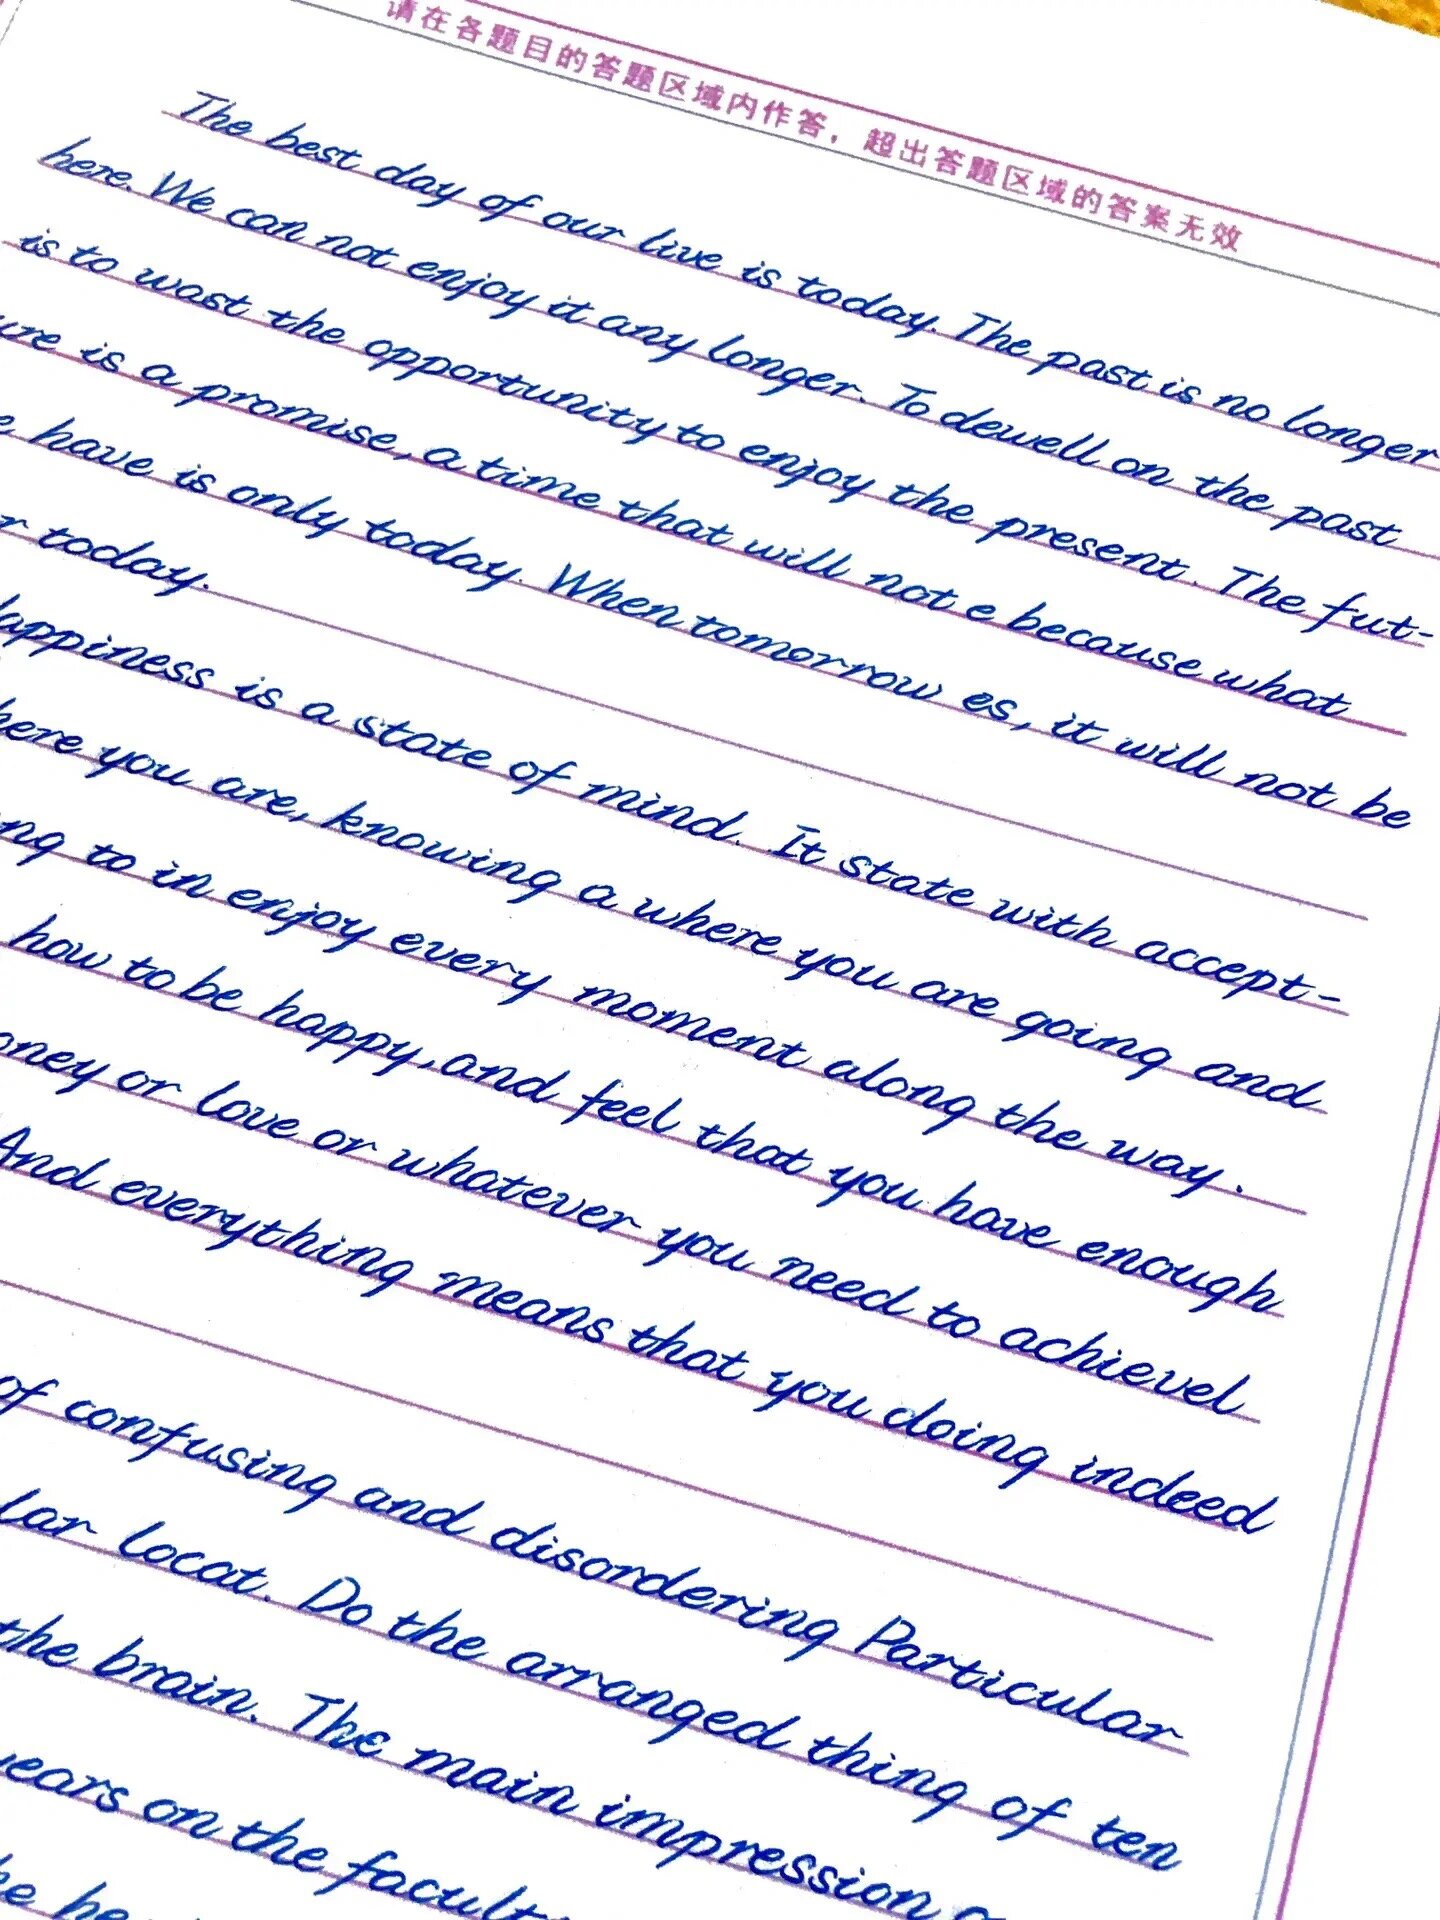 请在各题目的答题区域内作答，超出答题区域的答案无效
The best day of our live is today. The past is no longer
here. We can not enjoy it any longer. To dewell on the past
is to wast the opportunity to enjoy the present. The fut-
ure is a promise, a time that will not e because what
have is only today. When tomorrow es, it will not be
today.
appiness is a state of mind. It state with accept-
here you are, knowing a where you are going and
ng to in enjoy every moment along the way.
how to be happy, and feel that you have enough
oney or love or whatever you need to achievel
And everything means that you doing indeed
of confusing and disordering Particular
lar locat. Do the arranged thing of ten
the brain. The main impression
ears on the facult
he